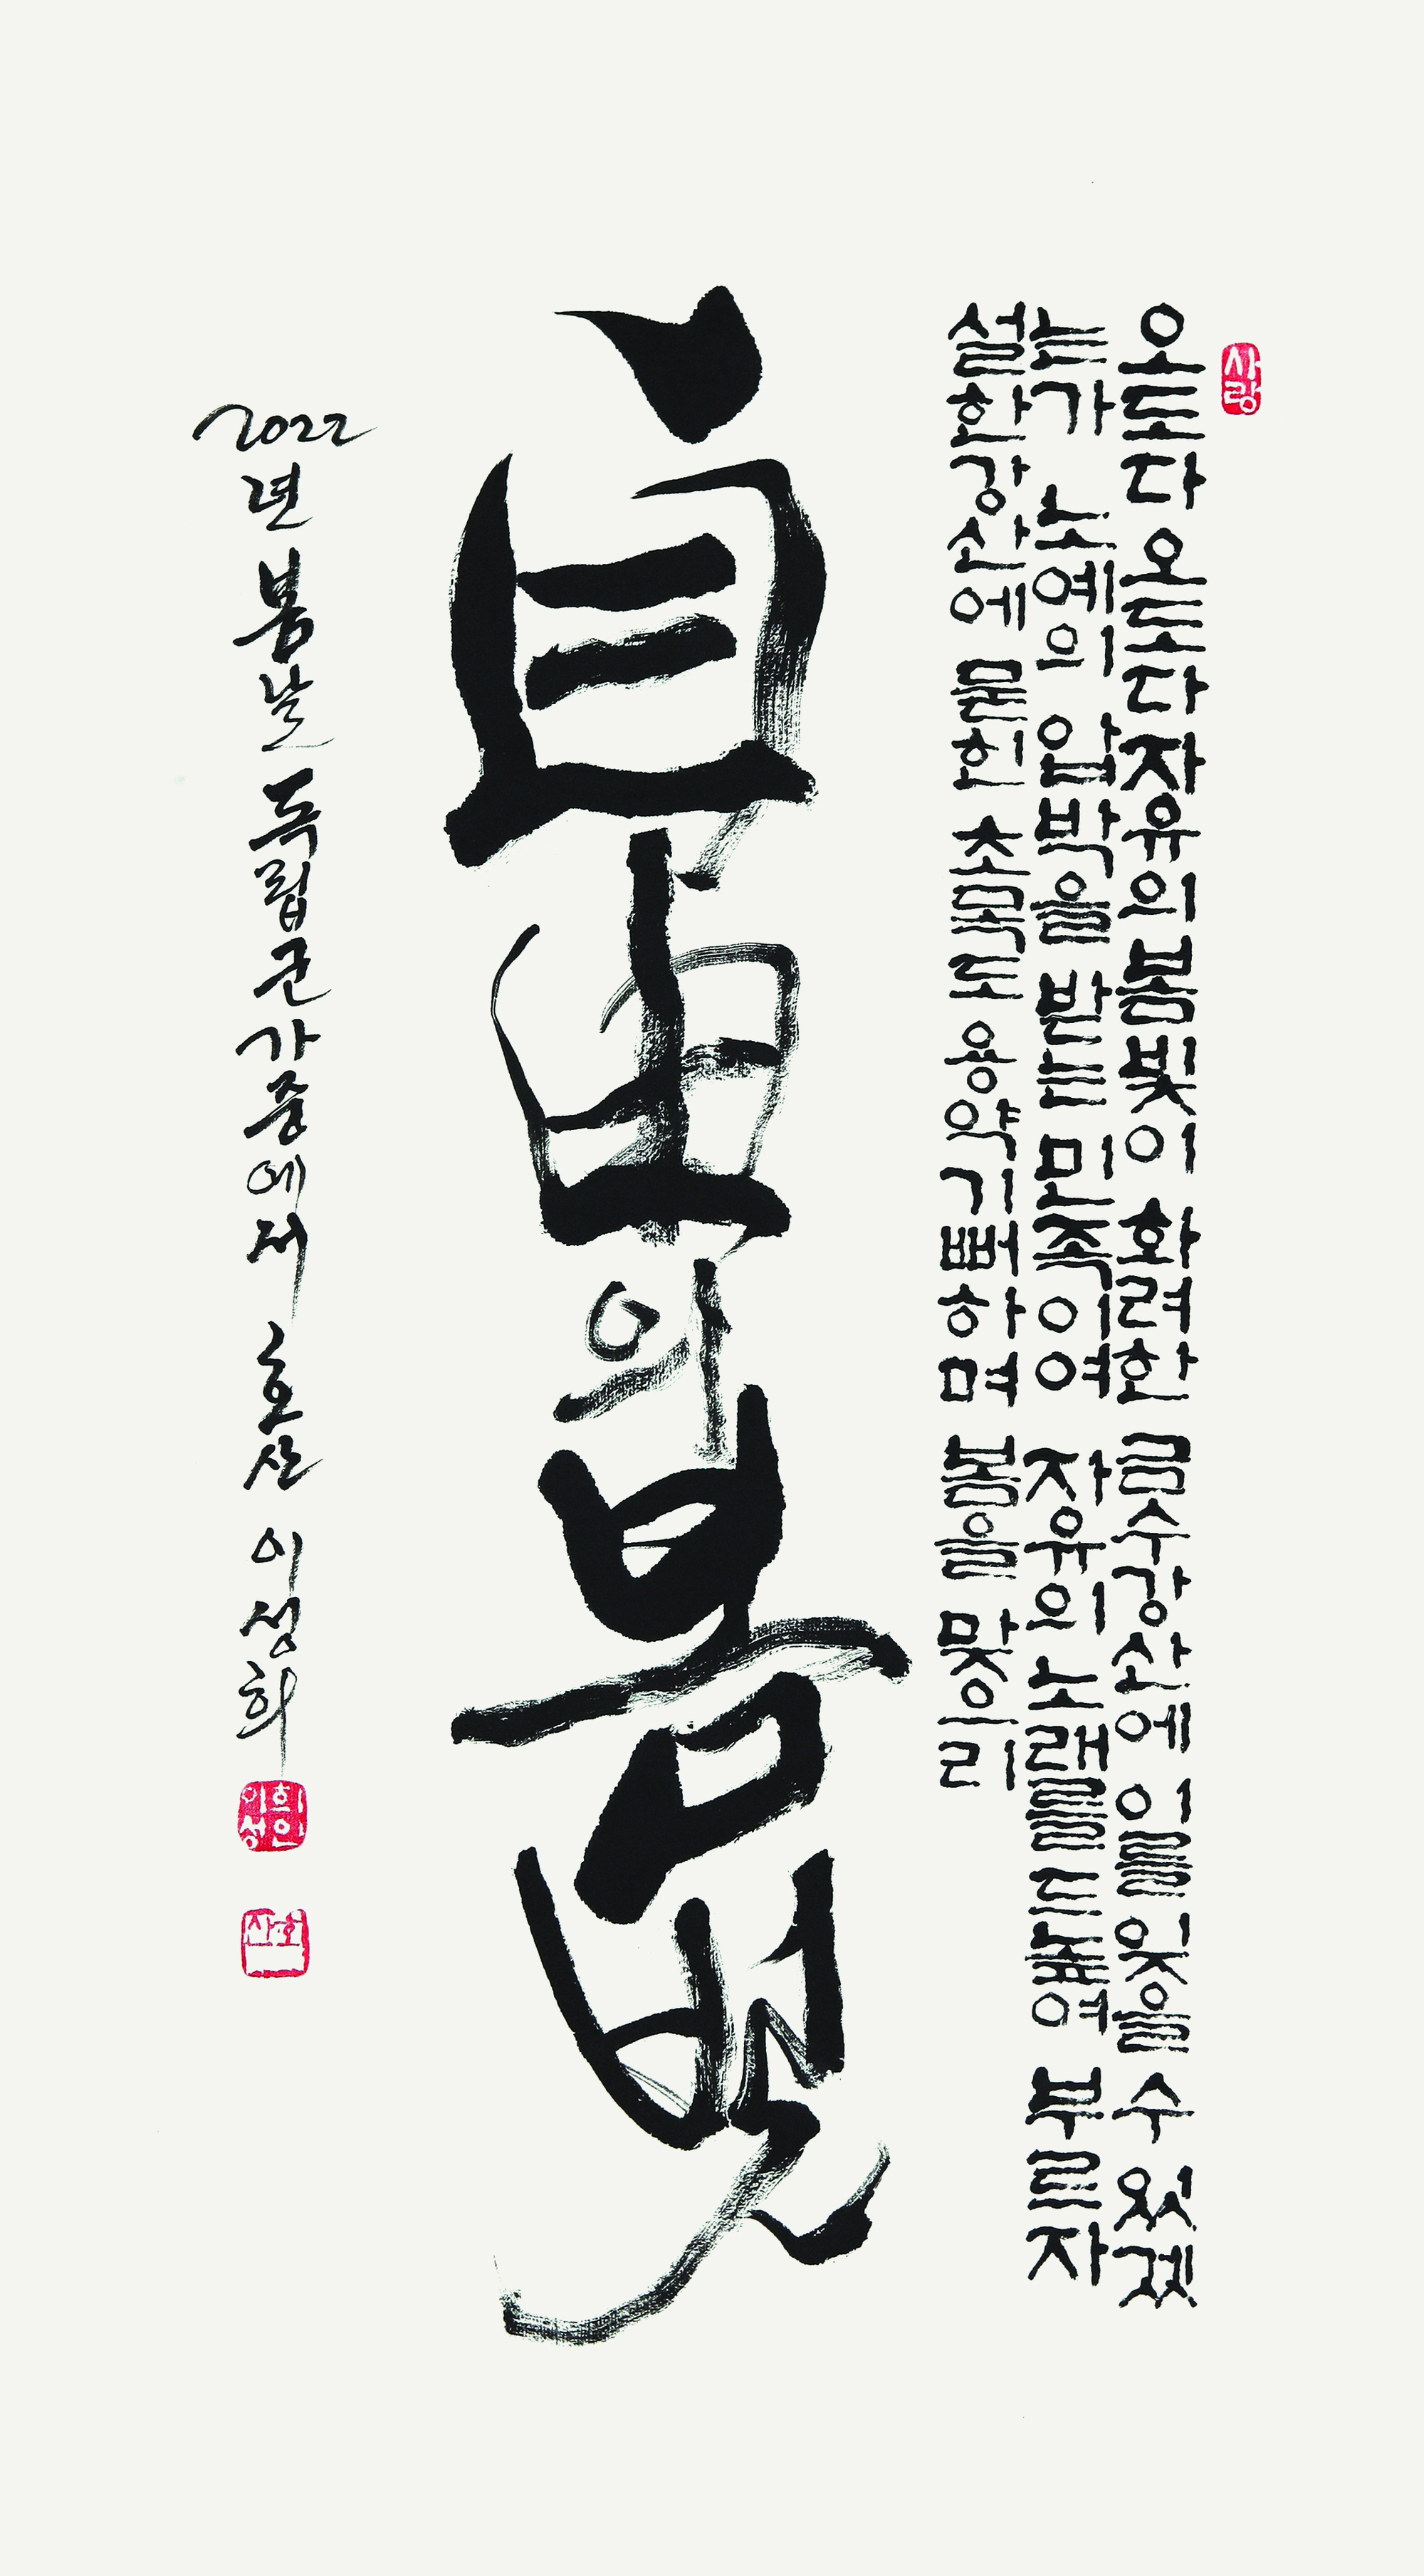 사랑
오도다 오도다 자유의 봄빛이 화려한 금수강산에 이를 잊을 수 있겠
는가 노예의 압박을 받는 민족이여 자유의 노래를 드높여 부르자
설한강산에 묻힌 초목도 용약기뻐하며 봄을 맞으리
自由의 봄빛
2022년 봄날 독립군가중에서 호산 이성희
이성희인
호산